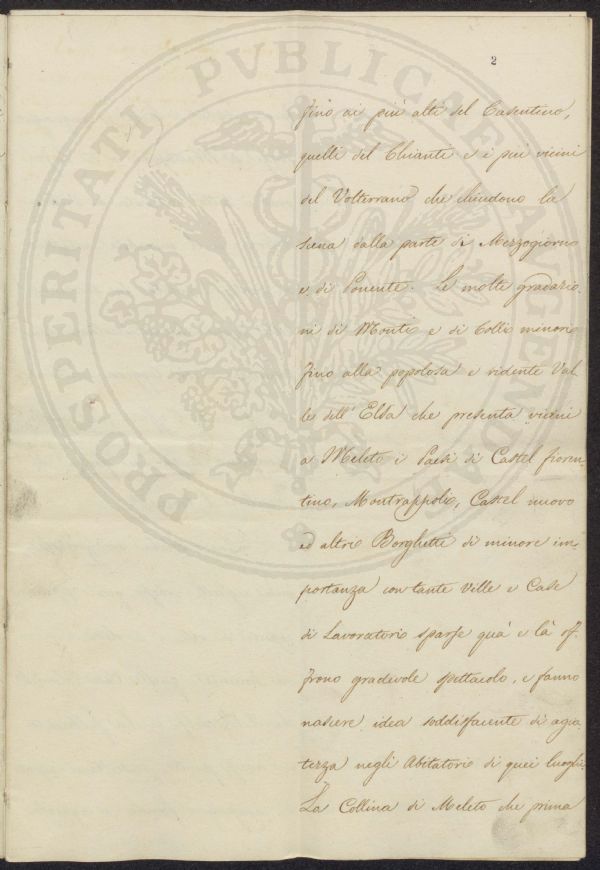 2
fino ai piu alti del Casentino,
quelli del Chianti e i piu vicini
del Volterrano che chiudono la
scena dalla parte di Mezzogiorno
e di Ponente. Le molte gradazio
ni di Monti e di Colli minori
fino alla popolosa e ridente Val
le dell'Elsa che presenta vicini
a Meleto i Paesi di Castel fioren
tino, Montrappoli, Castel nuovo
ed altri Borghetti di minore im
portanza con tante Ville e Case
di Lavoratori sparse quà e là of-
frono gradevole spettacolo, e fanno
nascere idea soddisfacente di agia
tezza negli Abitatori di quei luoghi.
La Collina di Meleto che prima
PROSPERITATI PVBLICAE AVGENDAE